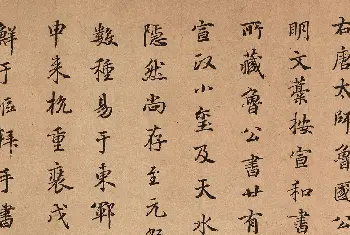 右唐太師魯國公
明文藁按宣和書
所藏魯公書廿有
宣政小璽及天水
隱然尚存至元
數種易于東鄆
申来杭重裝戊
鮮于樞拜手書